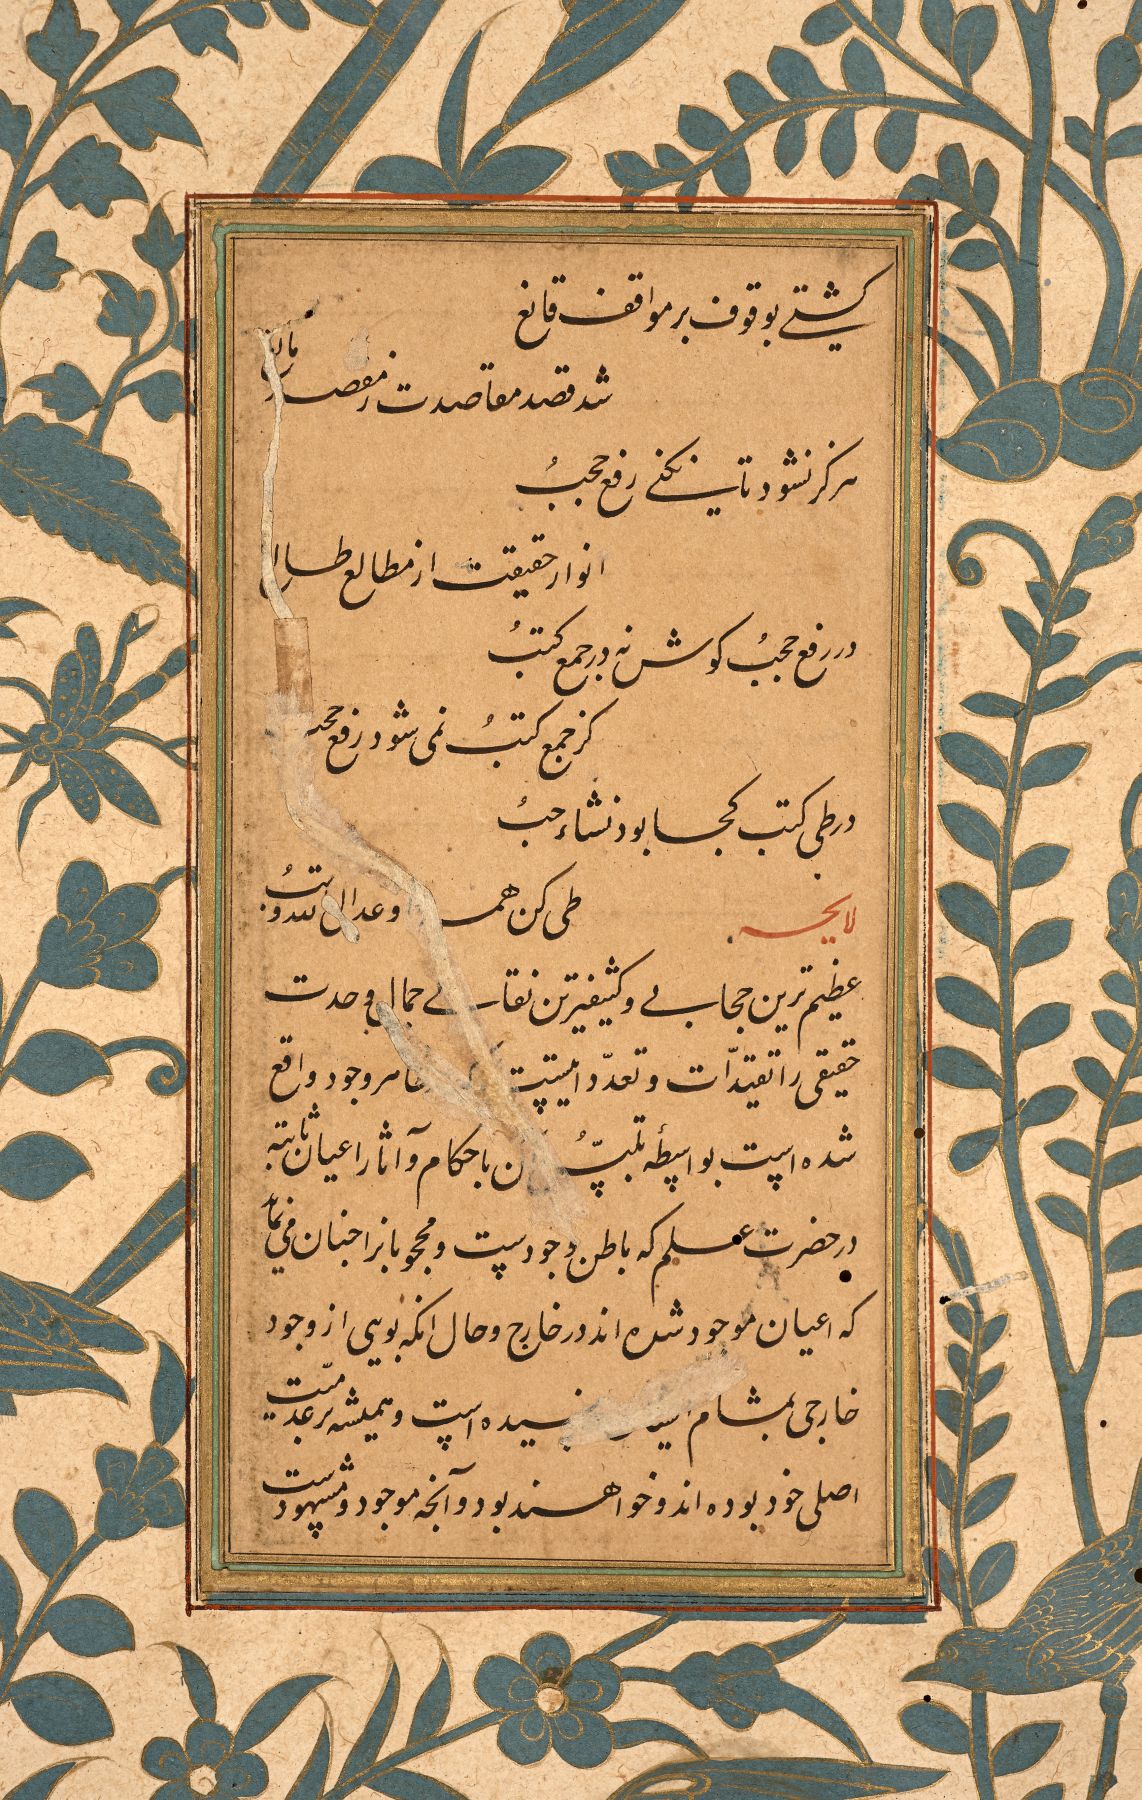 گشتی بوقوف بر مواقف قانع
شد قصد مقاصدت ز مقصد مانع
هرگز نشود تا نکنی رفع حجب
انوار حقیقت از مطالع طالع
در رفع حجب کوش نه در جمع کتب
کز جمع کتب نمی شود رفع حجب
در طی کتب کجا بود نشاء حب
طی کن همه را وعد الی الله وتب
لایحه
عظیم ترین حجابی و کثیفترین نقابی جمال وحدت
حقیقی را تقیدات و تعدد ایست که در ظاهر وجود واقع
شده است بواسطه تلبس آن باحکام و آثار اعیان ثابته
در حضرت علم که باطن وجودست و محجوبانرا چنان می نماید
که اعیان موجود شده اند در خارج و حال انکه بویی از وجود
خارجی بمشام ایشان نرسیده است و همیشه بر عدمیت
اصلی خود بوده اند و خواهند بود و آنچه موجود و مشهودست